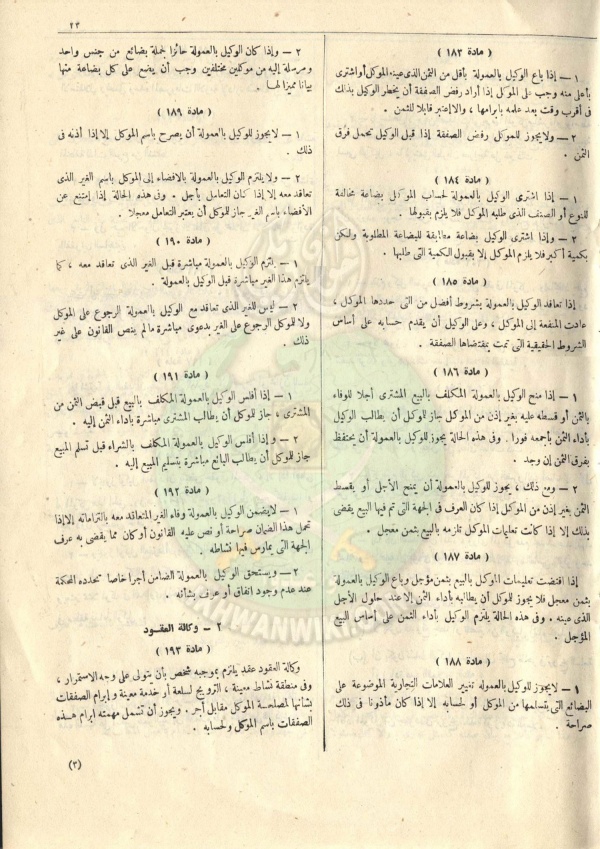 ٢٣
( مادة ١٨٣ )
١ — إذا باع الوكيل بالعمولة بأقل من الثمن الذى عينه الموكل أو اشترى
بأعلى منه وجب على الموكل إذا أراد رفض الصفقة أن يخطر الوكيل بذلك
فى أقرب وقت بعد علمه بابرامها ، والا اعتبر قابلا للثمن .
٢ — ولايجوز للموكل رفض الصفقة إذا قبل الوكيل تحمل فرق
الثمن .
( مادة ١٨٤ )
١ — إذا اشترى الوكيل بالعمولة لحساب الموكل بضاعة مخالفة
للنوع أو الصنف الذى طلبه الموكل فلا يلزم بقبولها .
٢ — وإذا اشترى الوكيل بضاعة مطابقة للبضاعة المطلوبة ولكن
بكمية أكبر فلا يلزم الموكل إلا بقبول الكمية التى طلبها .
( مادة ١٨٥ )
إذا تعاقد الوكيل بالعمولة بشروط أفضل من التى حددها الموكل ،
عادت المنفعة إلى الموكل ، وعلى الوكيل أن يقدم حسابه على أساس
الشروط الحقيقية التى تمت بمقتضاها الصفقة .
( مادة ١٨٦ )
١ — إذا منح الوكيل بالعمولة المكلف بالبيع المشترى أجلا للوفاء
بالثمن أو قسطه عليه بغير إذن من الموكل جاز للموكل أن يطالب الوكيل
بأداء الثمن بأجمعه فورا . وفى هذه الحالة يجوز للوكيل بالعمولة أن يحتفظ
بفرق الثمن إن وجد .
٢ — ومع ذلك ، يجوز للوكيل بالعمولة أن يمنح الأجل أو يقسط
الثمن بغير إذن من الموكل إذا كان العرف فى الجهة التى تم فيها البيع يقضى
بذلك إلا إذا كانت تعليمات الموكل تلزمه بالبيع بثمن معجل .
( مادة ١٨٧ )
إذا اقتضت تعليمات الموكل بالبيع بثمن مؤجل وباع الوكيل بالعمولة
بثمن معجل فلا يجوز للموكل أن يطالبه بأداء الثمن إلا عند حلول الأجل
الذى عينه . وفى هذه الحالة يلتزم الوكيل بأداء الثمن على أساس البيع
المؤجل .
( مادة ١٨٨ )
١ — لايجوز للوكيل بالعمولة تغيير العلامات التجارية الموضوعة على
البضائع التى يتسلمها من الموكل أو لحسابه إلا إذا كان مأذونا فى ذلك
صراحة .
٢ — وإذا كان الوكيل بالعمولة حائزا لجملة بضائع من جنس واحد
ومرسلة إليه من موكلين مختلفين وجب أن يضع على كل بضاعة منها
بيانا مميزا لها .
( مادة ١٨٩ )
١ — لايجوز للوكيل بالعمولة أن يصرح باسم الموكل إلا إذا أذنه فى
ذلك .
٢ — ولا يلتزم الوكيل بالعمولة بالافضاء إلى الموكل باسم الغير الذى
تعاقد معه إلا إذا كان التعامل بأجل . وفى هذه الحالة إذا إمتنع عن
الأفضاء باسم الغير جاز للموكل أن يعتبر التعامل معجلا .
( مادة ١٩٠ )
١ — يلتزم الوكيل بالعمولة مباشرة قبل الغير الذى تعاقد معه ، كما
يلتزم هذا الغير مباشرة قبل الوكيل بالعمولة .
٢ — ليس للغير الذى تعاقد مع الوكيل بالعمولة الرجوع على الموكل
ولا للموكل الرجوع على الغير بدعوى مباشرة مالم ينص القانون على غير
ذلك .
( مادة ١٩١ )
١ — إذا أفلس الوكيل بالعمولة المكلف بالبيع قبل قبض الثمن من
المشترى ، جاز للموكل أن يطالب المشترى مباشرة بأداء الثمن إليه .
٢ — وإذا أفلس الوكيل بالعمولة المكلف بالشراء قبل تسلم المبيع
جاز للموكل أن يطالب البائع مباشرة بتسليم المبيع إليه .
( مادة ١٩٢ )
١ — لايضمن الوكيل بالعمولة وفاء الغير المتعاقد معه بالتزاماته إلا إذا
تحمل هذا الضمان صراحة أو نص عليه القانون أو كان مما يقضى به عرف
الجهة التى يمارس فيها نشاطه .
٢ — ويستحق الوكيل بالعمولة الضامن أجرا خاصا تحدده المحكمة
عند عدم وجود اتفاق أو عرف بشأنه .
٢ — وكالة العقود
( مادة ١٩٣ )
وكالة العقود عقد يلتزم بموجبه شخص بأن يتولى على وجه الاستمرار ،
وفى منطقة نشاط معينة ، الترويج لسلعة أو خدمة معينة وإبرام الصفقات
بشأنها لمصلحة الموكل مقابل أجر . ويجوز أن تشمل مهمته ابرام هذه
الصفقات باسم الموكل ولحسابه .
(٣)
IKHWANWIKI.COM